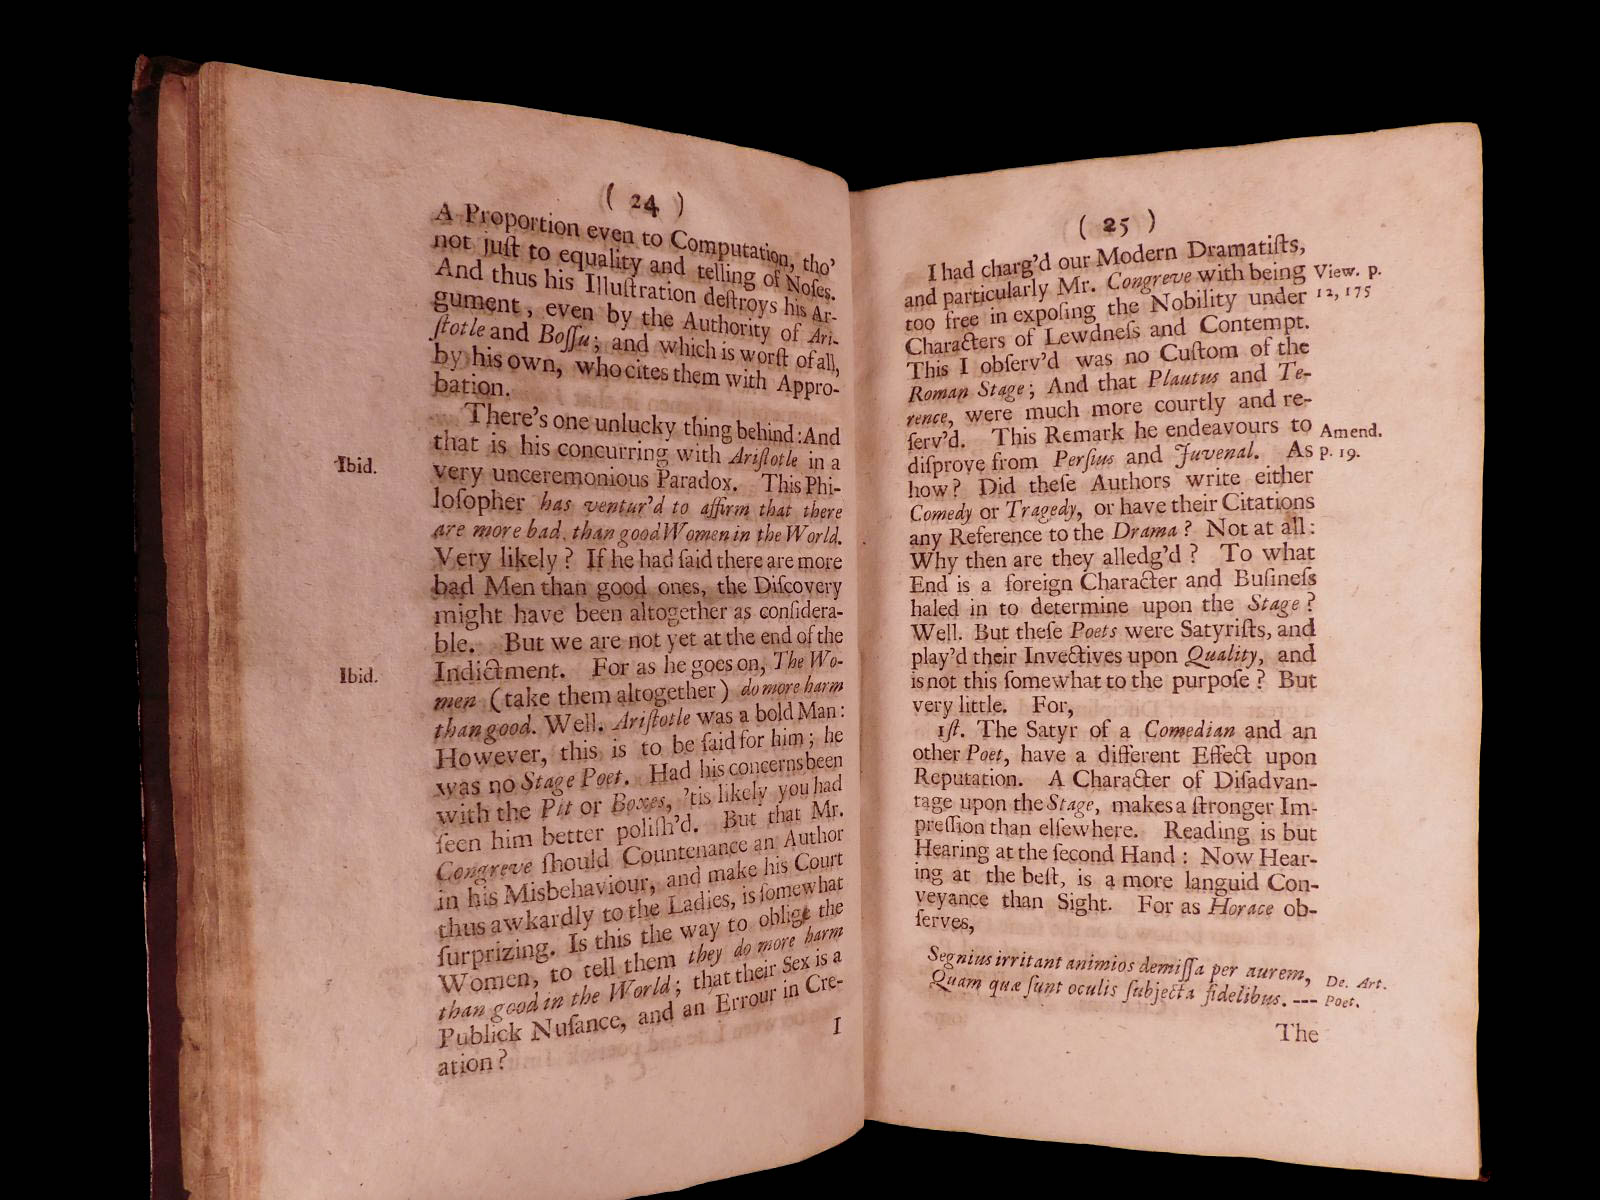 ( 24 )
A Proportion even to Computation, tho'
not juſt to equality and telling of Noſes.
And thus his Illuſtration deſtroys his Ar-
gument, even by the Authority of Ari-
ſtotle and Boſſu; and which is worſt of all,
by his own, who cites them with Appro-
bation.
There's one unlucky thing behind: And
that is his concurring with Ariſtotle in a
Ibid.
very unceremonious Paradox. This Phi-
loſopher has ventur'd to affirm that there
are more bad, than good Women in the World.
Very likely? If he had ſaid there are more
bad Men than good ones, the Diſcovery
might have been altogether as conſidera-
ble. But we are not yet at the end of the
Indictment. For as he goes on, The Wo-
Ibid.
men (take them altogether) do more harm
than good. Well. Ariſtotle was a bold Man:
However, this is to be ſaid for him; he
was no Stage Poet. Had his concerns been
with the Pit or Boxes, 'tis likely you had
ſeen him better poliſh'd. But that Mr.
Congreve ſhould Countenance an Author
in his Misbehaviour, and make his Court
thus awkardly to the Ladies, is ſomewhat
ſurprizing. Is this the way to oblige the
Women, to tell them they do more harm
than good in the World; that their Sex is a
Publick Nuſance, and an Errour in Cre-
ation?
I
( 25 )
I had charg'd our Modern Dramatiſts,
and particularly Mr. Congreve with being
View. p.
too free in expoſing the Nobility under
12, 175
Characters of Lewdneſs and Contempt.
This I obſerv'd was no Cuſtom of the
Roman Stage; And that Plautus and Te-
rence, were much more courtly and re-
ſerv'd. This Remark he endeavours to
Amend.
diſprove from Perſius and Juvenal. As
p. 19.
how? Did theſe Authors write either
Comedy or Tragedy, or have their Citations
any Reference to the Drama? Not at all:
Why then are they alledg'd? To what
End is a foreign Character and Buſineſs
haled in to determine upon the Stage?
Well. But theſe Poets were Satyriſts, and
play'd their Invectives upon Quality, and
is not this ſomewhat to the purpoſe? But
very little. For,
1ſt. The Satyr of a Comedian and an
other Poet, have a different Effect upon
Reputation. A Character of Diſadvan-
tage upon the Stage, makes a ſtronger Im-
preſſion than elſewhere. Reading is but
Hearing at the ſecond Hand: Now Hear-
ing at the beſt, is a more languid Con-
veyance than Sight. For as Horace ob-
ſerves,
Segnius irritant animios demiſſa per aurem,
De. Art.
Quam quæ ſunt oculis ſubjecta fidelibus. ---
Poet.
The